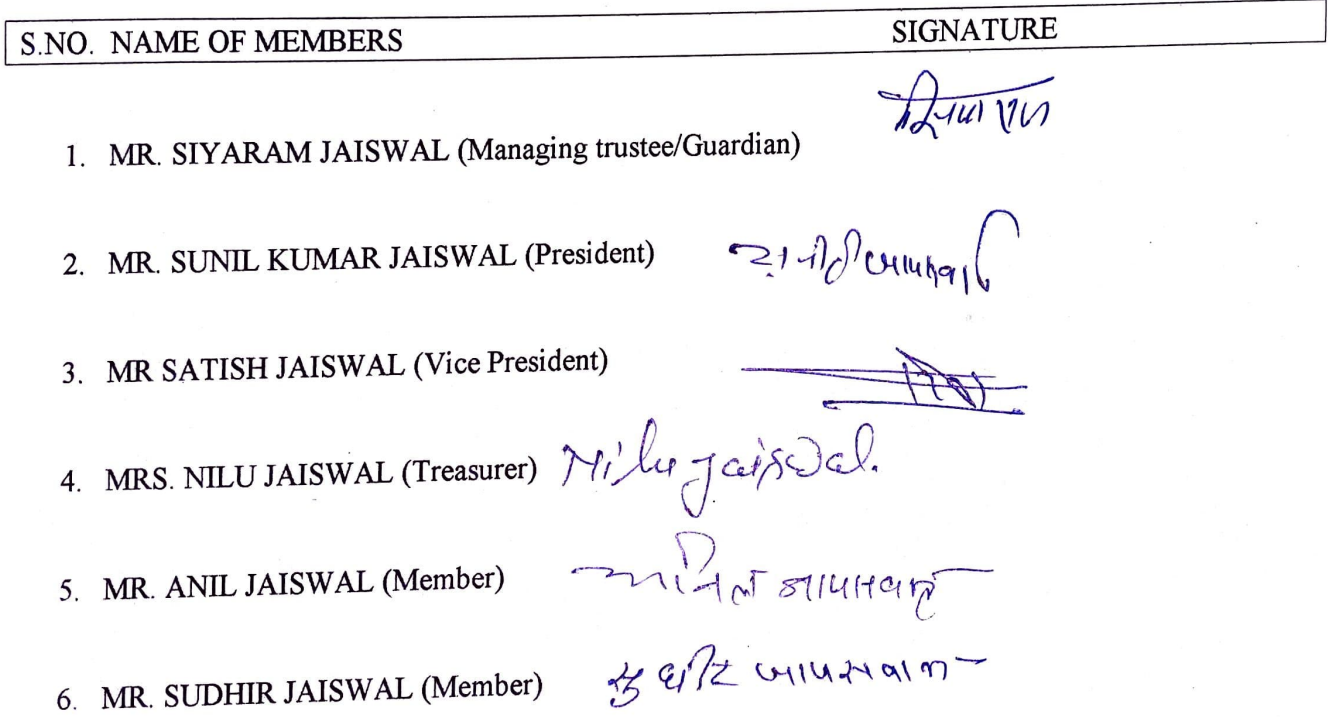 S.NO. NAME OF MEMBERS SIGNATURE
1. MR. SIYARAM JAISWAL (Managing trustee/Guardian)
2. MR. SUNIL KUMAR JAISWAL (President)
3. MR SATISH JAISWAL (Vice President)
4. MRS. NILU JAISWAL (Treasurer) Nilu Jaiswal.
5. MR. ANIL JAISWAL (Member)
6. MR. SUDHIR JAISWAL (Member) सुधीर जायसवाल